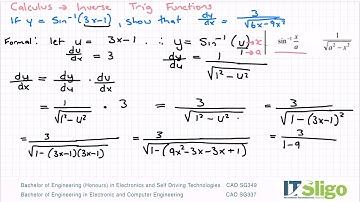 Calculus → Inverse Trig Functions
If y = Sin⁻¹(3x-1), show that dy/dx = 3/√(6x-9x²)
Formal: let u = 3x-1 . ∴ y = Sin⁻¹(u/1) → x → a
sin⁻¹ x/a
1/√(a² − x²)
du/dx = 3
dy/du = 1/√(1²-u²)
dy/dx = dy/du · du/dx
= 1/√(1²-u²) · 3 = 3/√(1²-u²) . = 3/√(1-(3x-1)²)
= 3/√(1-(3x-1)(3x-1)) = 3/√(1-(9x²-3x-3x+1) = 3/1-9
Bachelor of Engineering (Honours) in Electronics and Self Driving Technologies CAO SG349
Bachelor of Engineering in Electronics and Computer Engineering CAO SG337
IT Sligo